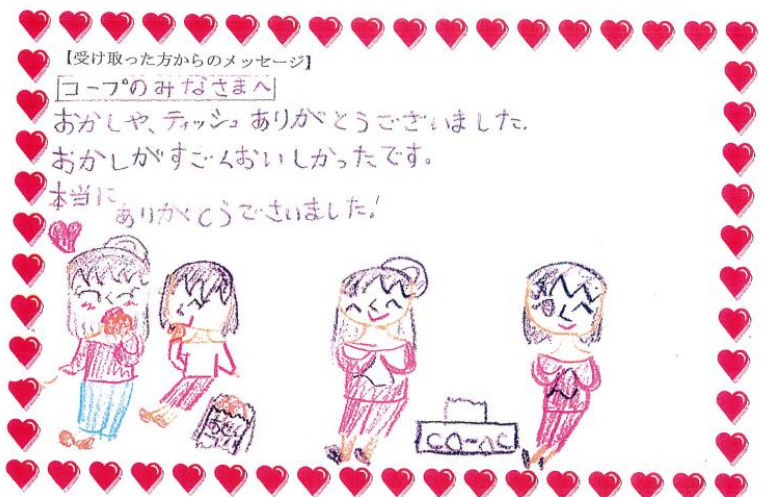 【受け取った方からのメッセージ】
コープのみなさまへ
おかしや、ティッシュありがとうございました。
おかしがすごくおいしかったです。
本当に
ありがとうございました!